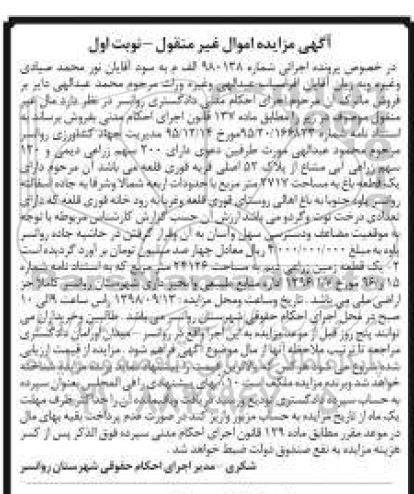 آگهی مزایده اموال غیر منقول – نوبت اول
در خصوص پرونده اجرائی شماره ۹۸۰۱۳۸ الف م به سود آقایان نور محمد صیادی
وغیره وبه زیان آقایان افراسیاب عبدالهی وغیره وراث مرحوم محمد عبدالهی دایر بر
فروش ماترک آن مرحوم اجرای احکام مدنی دادگستری روانسر در نظر دارد مال غیر
منقول موصوف در زیر را مطابق ماده ۱۳۷ قانون اجرای احکام مدنی بفروش برساند به
استناد نامه شماره ۹۵/۲۰/۱۶۶۸۲۳ مورخ ۹۵/۱۲/۱۴ مدیریت جهاد کشاورزی روانسر
مرحوم محمود عبدالهی مورث طرفین دعوی دارای ۲۰۰ سهم زراعی دیمی و ۱۲۰
سهم زراعی آبی مشاع از پلاک ۵۳ اصلی قریه قوری قلعه می باشد آن مرحوم دارای
یک قطعه باغ به مساحت ۳۷۱۷ متر مربع با حدودات اربعه شمالا وشرقا به جاده آسفالته
روانسر پاوه جنوبا به باغ اهالی روستای قوری قلعه وغربا به رود خانه قوری قلعه که دارای
تعدادی درخت توت وگردو می باشد ارزش آن حسب گزارش کارشناس مربوطه با توجه
به موقعیت مضاعف ودسترسی سهل وآسان به آن وقرار گرفتن در حاشیه جاده روانسر
پاوه به مبلغ ۴/۰۰۰/۰۰۰/۰۰۰ ریال معادل چهار صد میلیون تومان بر آورد گردیده است
۲. یک قطعه زمین زراعی دیم به مساحت ۲۴۱۲۶ متر مربع که به استناد نامه شماره
اداره منابع طبیعی و آبخیز داری شهرستان روانسر کاملا جز
اراضی ملی می باشد . تاریخ وساعت ومحل مزایده : ۱۳۹۸/۰۹/۱۳ راس ساعت ۹ الی ۱۰
صبح در محل اجرای احکام حقوقی شهرستان روانسر می باشد طالبین وخریداران می
توانند پنج روز قبل از موعد مزایده به این اجرا واقع در روانسر – میدان اورامان دادگستری
مراجعه تا ترتیب ملاحظه آنها از مال موضوع آگهی فراهم شود . مزایده از قیمت ارزیابی
شده شروع می شود هرکس که بالاترین قیمت را پیشنهاد نماید برنده مزایده شناخته
خواهد شد وبرنده مزایده مکلف است ۱۰٪ بهای پیشنهادی را فی المجلس بعنوان سپرده
به حساب سپرده دادگستری تودیع و رسید دریافت وباقیمانده آن را حداکثر ظرف مهلت
یک ماه از تاریخ مزایده به حساب مزبور واریز کند در صورت عدم پرداخت بقیه بهای مال
در موعد مقرر مطابق ماده ۱۲۹ قانون اجرای احکام مدنی سپرده فوق الذکر پس از کسر
هزینه مزایده به نفع صندوق دولت ضبط خواهد شد .
شکری – مدیر اجرای احکام حقوقی شهرستان روانسر